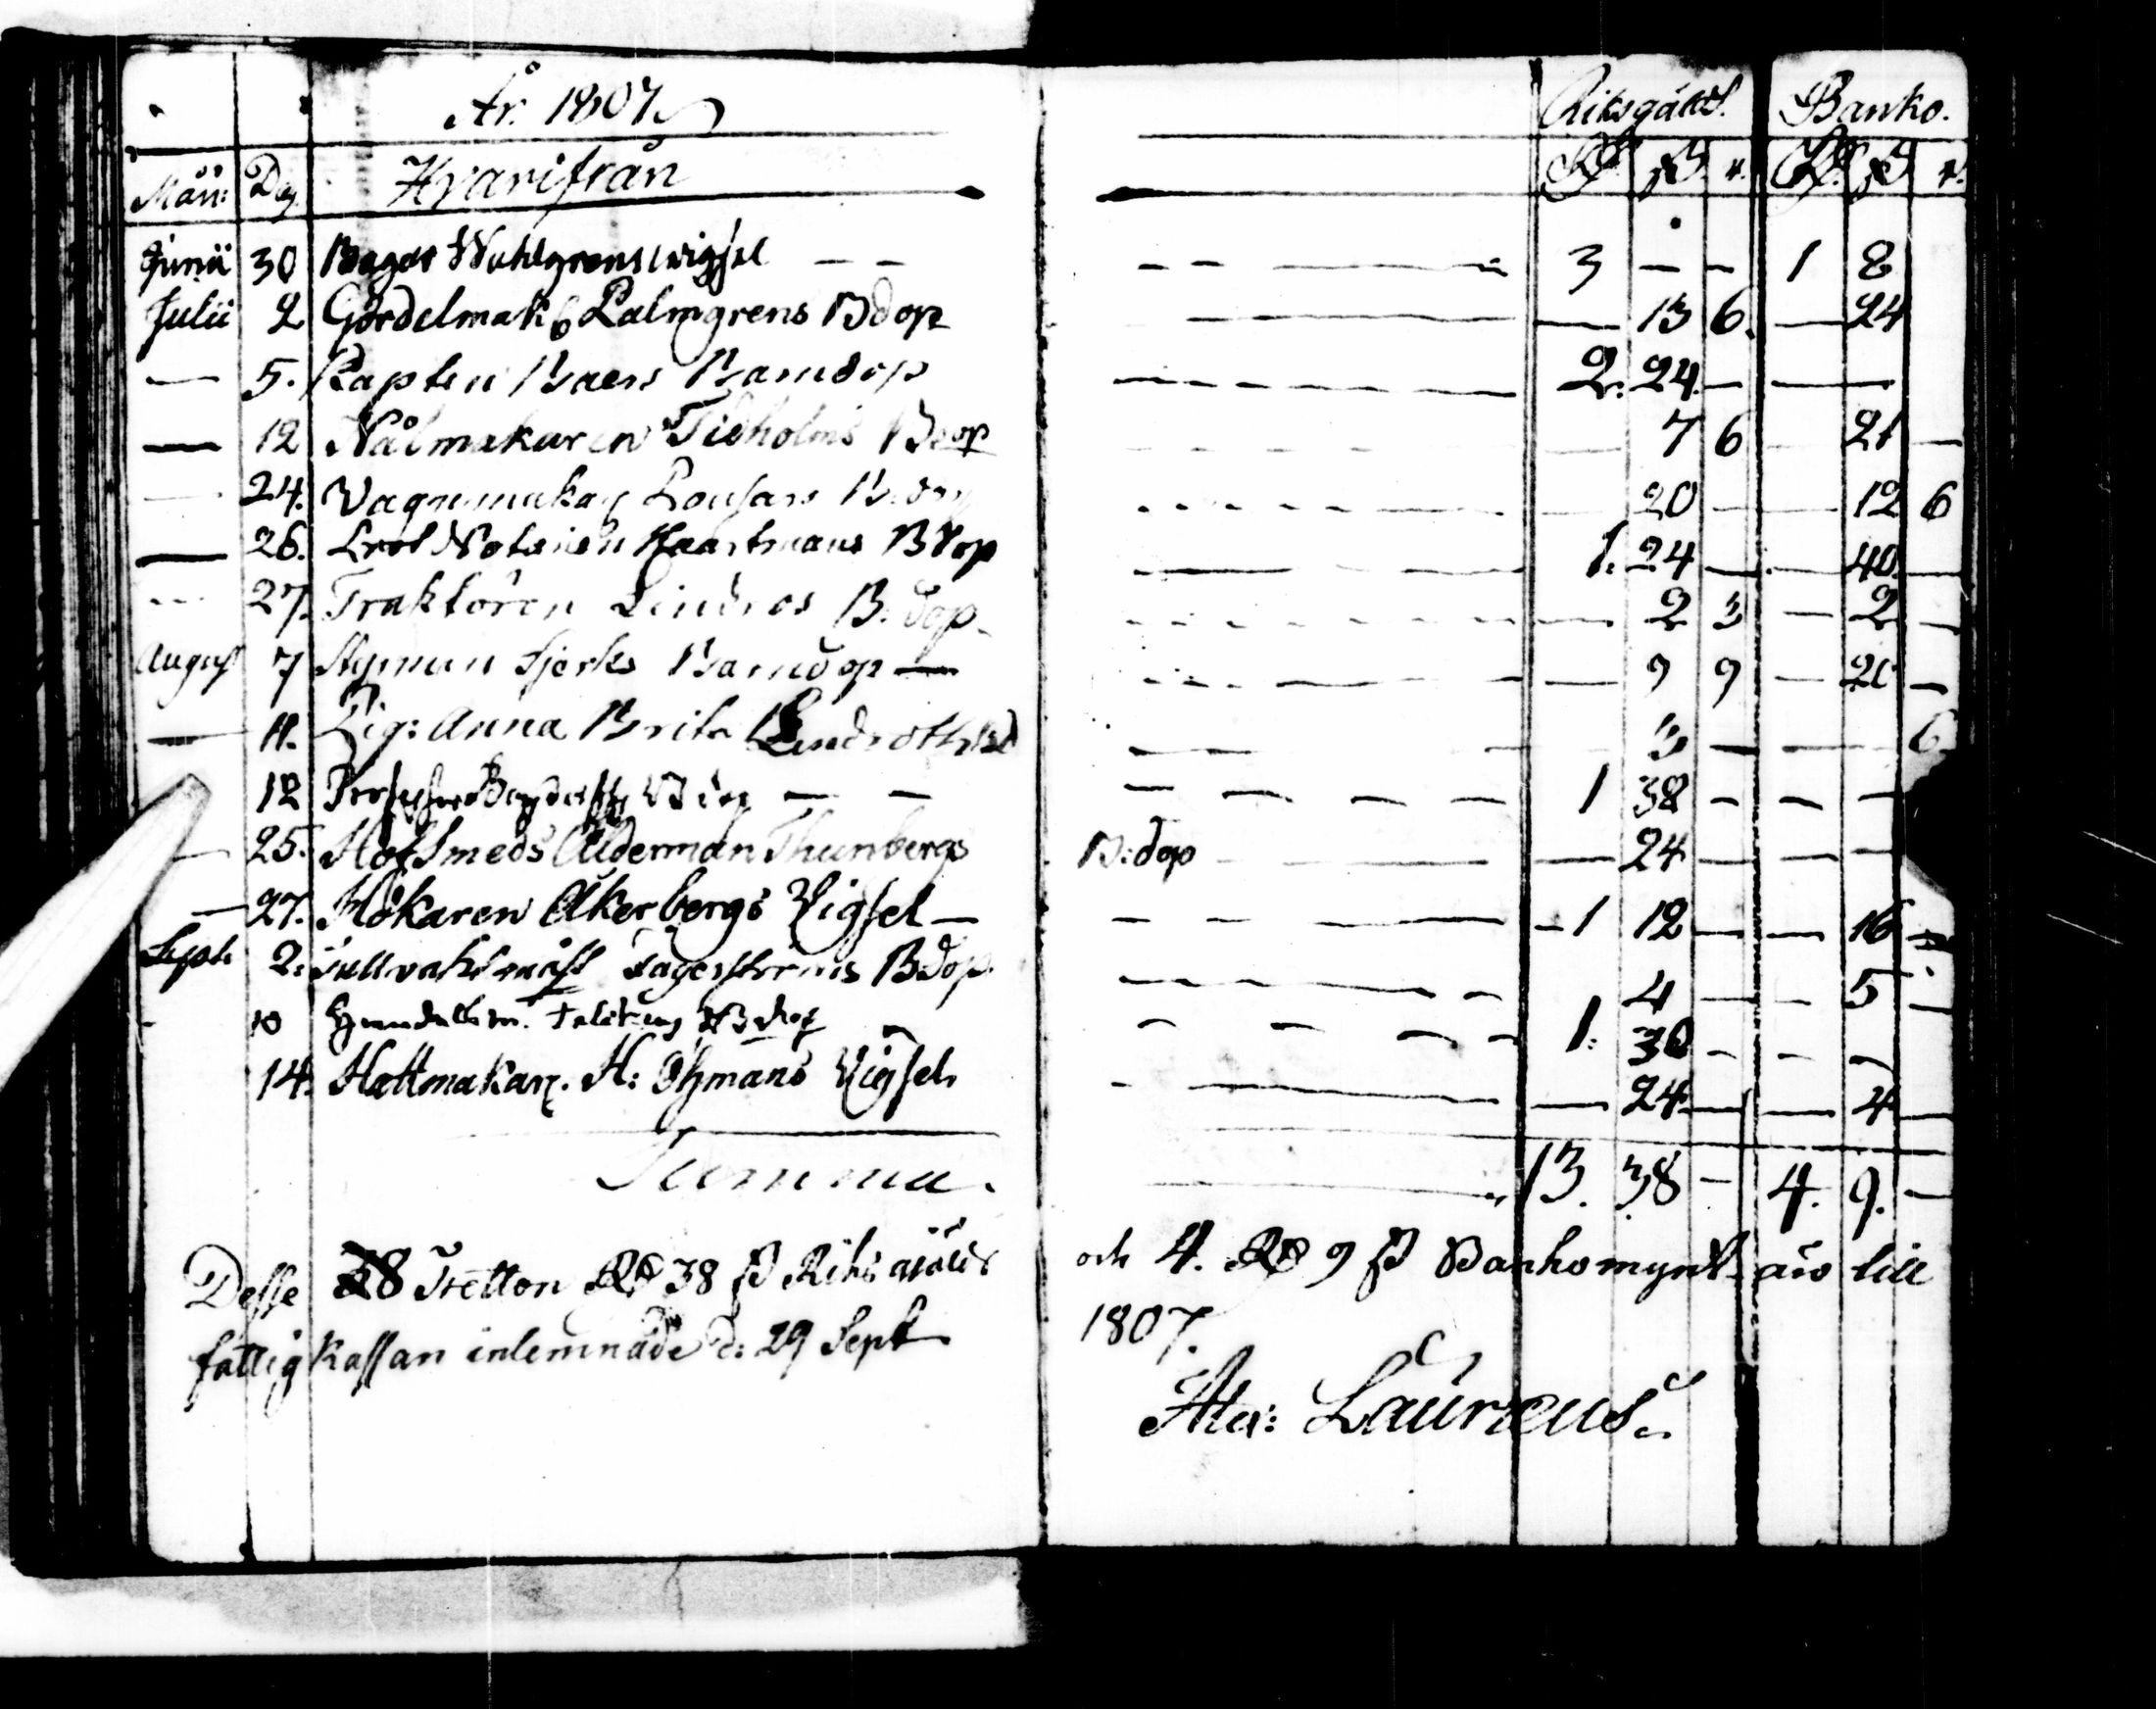 År. 1807
Riksgälds. Banko.
Mån: Dag. Hvarifrån Rd. ß. r. Rd. ß r.
Junii 30 Bagar Wahlgrens wigsel — — 3 — — 1 8
Julii 2 Gördelmak Palmgrens Bdop — 13 6. — 24
— 5. Kapten Baers Barndop 2. 24 — —
— 12 Nålmakaren Tidholms Bdop 7 6 21 —
— 24. Vagnmakar B.dop 20 — — 12 6
— 26. Notarien Haartmans Bdop 1. 24 — — 40. —
— 27. Traktören Lindros B. dop. — 2 3 — 2 —
August 7 Barndop — — 9 9 — 20 —
— 11. Pig: Anna Brita Lindroth 3 — — 6
12 Professor Bdop — — 1 38 — — —
— 25. Hofsmeds Ålderman Thunbergs B:dop — 24 — — —
— 27. Hökaren Åkerbergs Vigsel — 1 12 — — 16 —
Sept. 2. Tullvaktmäst Fagerströms Bdop. 4 — — 5 —
10 Bdop 1. 30 — — —
14. Hattmakar. H: Öhmans Vigsel. — 24 — — 4 —
Summa. 13. 38 — 4. 9. —
Desse Tretton Rd 38 ß Riksgälds och 4. Rd 9 ß Bankomynt äro till
fattigkassan inlemnade d: 29 Sept 1807.
Alex: Lauræus.